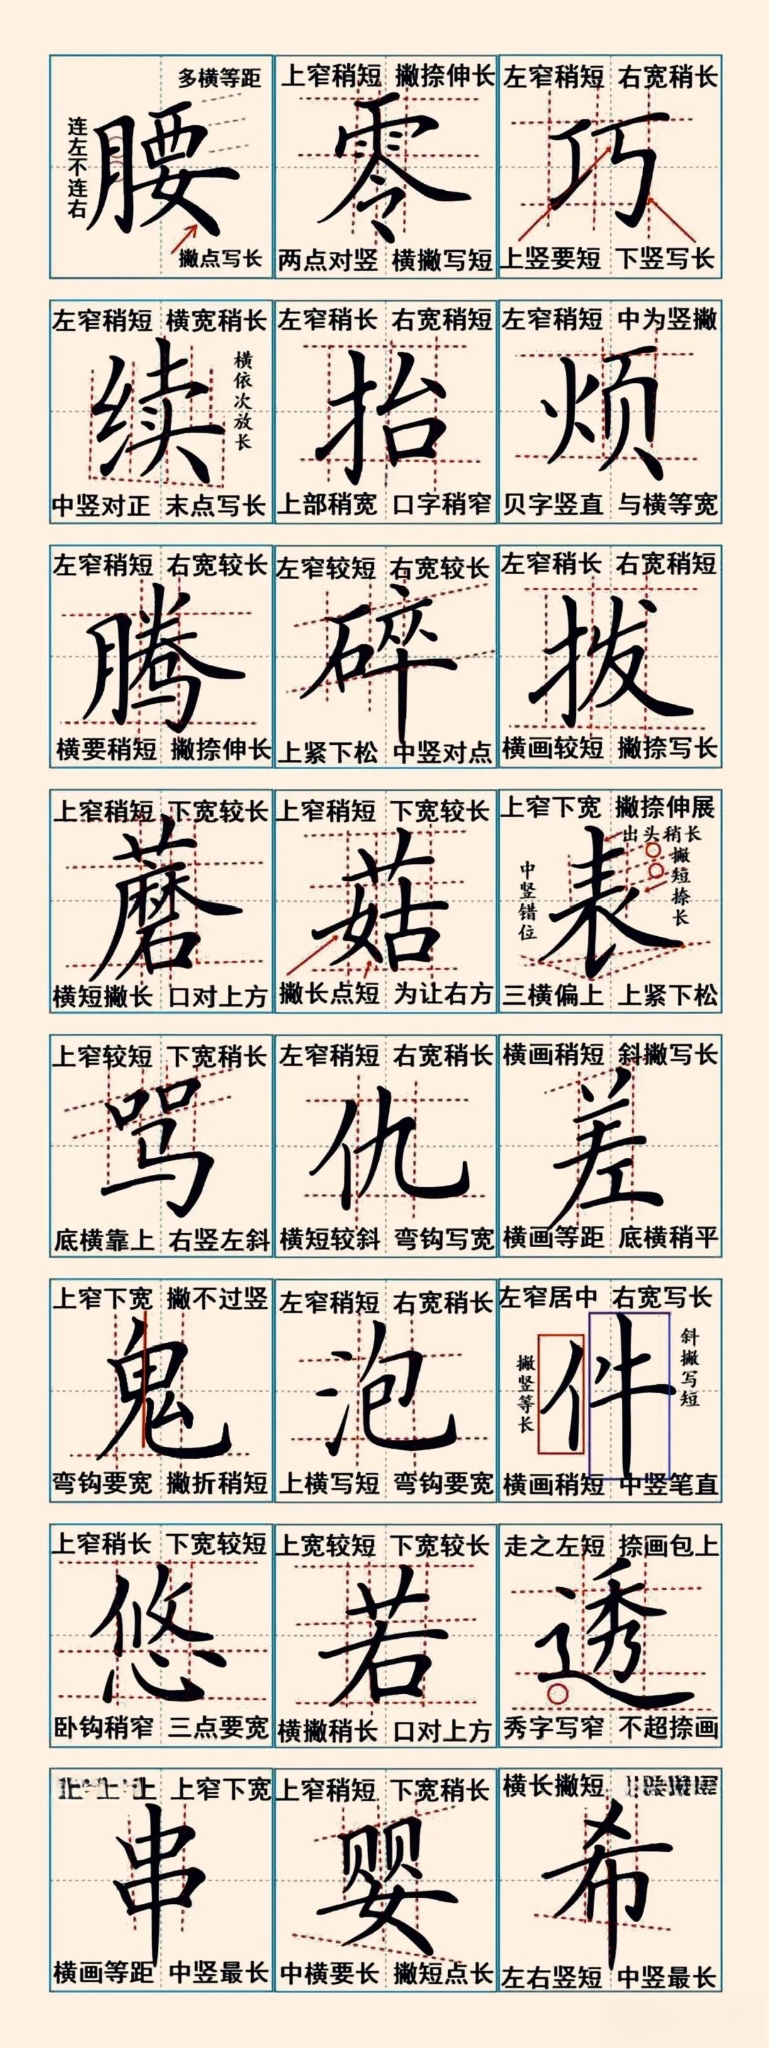 多横等距
连左不连右
腰
撇点写长
上窄稍短 撇捺伸长
零
两点对竖 横撇写短
左窄稍短 右宽稍长
巧
上竖要短 下竖写长
左窄稍短 横宽稍长
续
横依次放长
中竖对正 末点写长
左窄稍长 右宽稍短
抬
上部稍宽 口字稍窄
左窄稍短 中为竖撇
烦
贝字竖直 与横等宽
左窄稍短 右宽较长
腾
横要稍短 撇捺伸长
左窄较短 右宽较长
碎
上紧下松 中竖对点
左窄稍长 右宽稍短
拨
横画较短 撇捺写长
上窄稍短 下宽较长
蘑
横短撇长 口对上方
上窄稍短 下宽较长
菇
撇长点短 为让右方
上窄下宽 撇捺伸展
出头稍长
撇短捺长
中竖错位
表
三横偏上 上紧下松
上窄较短 下宽稍长
骂
底横靠上 右竖左斜
左窄稍短 右宽稍长
仇
横短较斜 弯钩写宽
横画稍短 斜撇写长
差
横画等距 底横稍平
上窄下宽 撇不过竖
鬼
弯钩要宽 撇折稍短
左窄稍短 右宽稍长
泡
上横写短 弯钩要宽
左窄居中 右宽写长
撇竖等长
件
斜撇写短
横画稍短 中竖笔直
上窄稍长 下宽较短
悠
卧钩稍窄 三点要宽
上宽较短 下宽较长
若
横撇稍长 口对上方
走之左短 捺画包上
透
秀字写窄 不超捺画
上窄下宽
串
横画等距 中竖最长
上窄稍短 下宽稍长
婴
中横要长 撇短点长
横长撇短
希
左右竖短 中竖最长